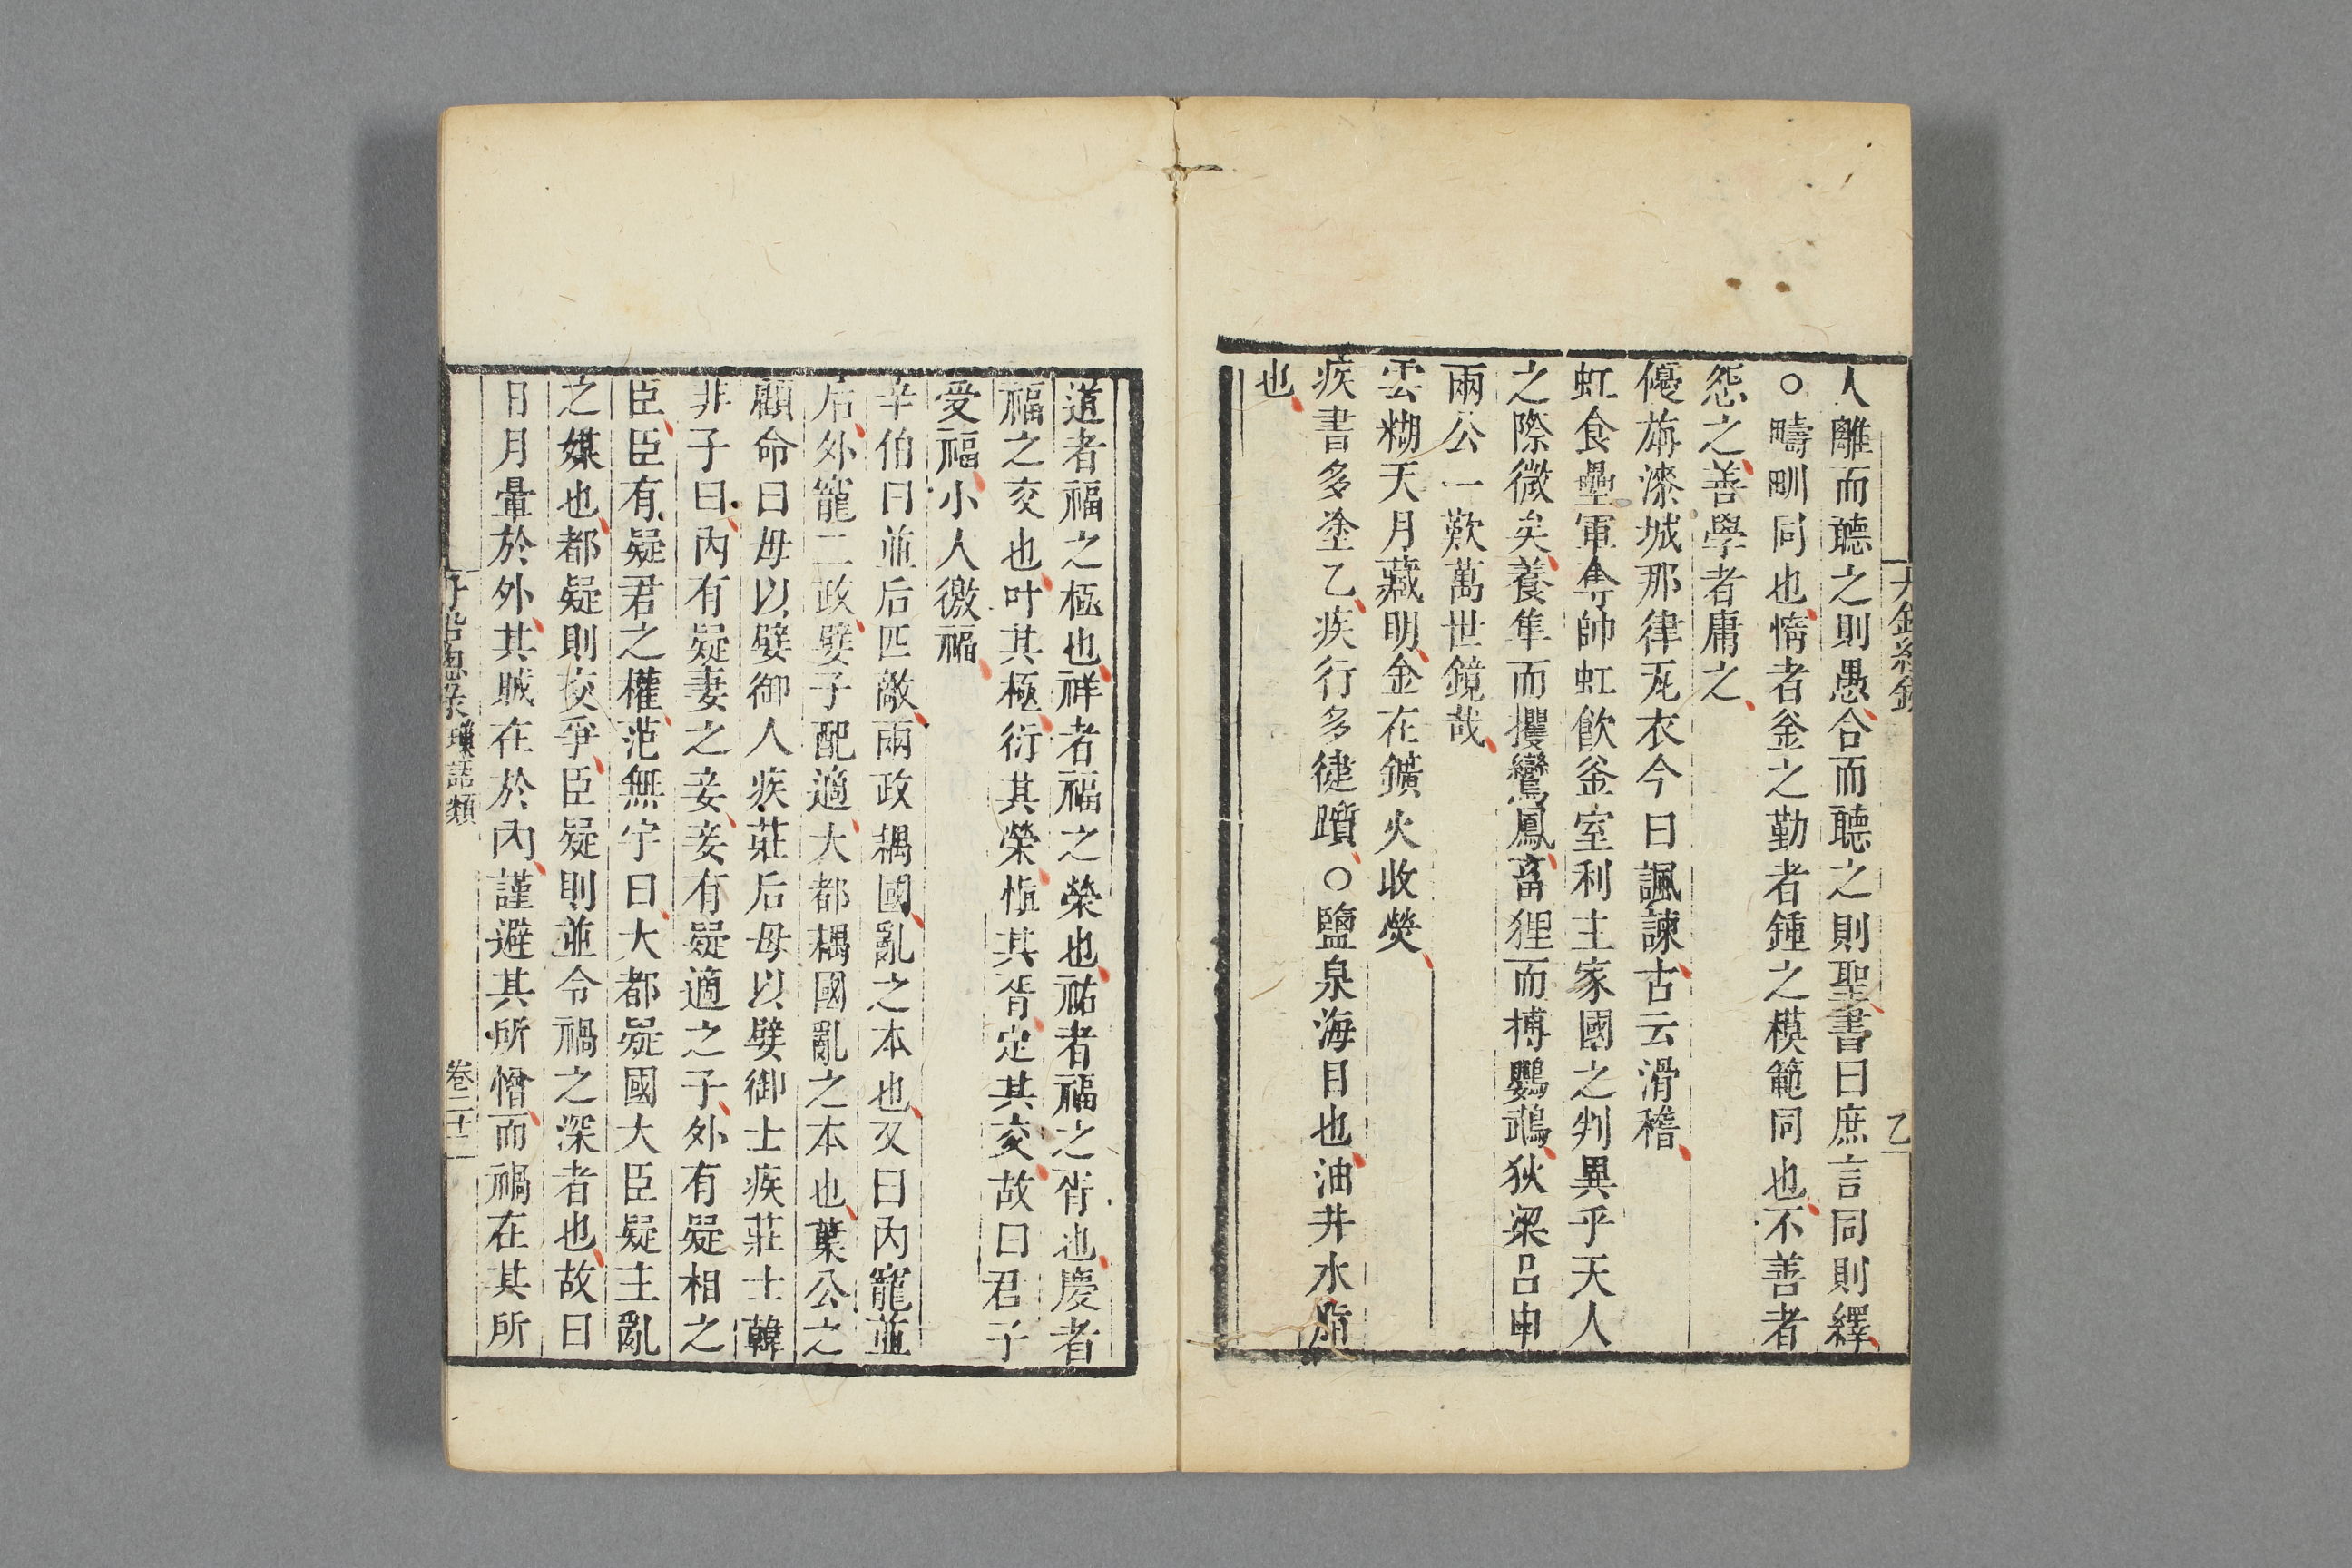 人離而聽之則愚合而聽之則聖書曰庶言同則繹
○疇甽同也惰者釜之勤者鍾之模範同也不善者
怨之善學者庸之
優旃漆城那律瓦衣今日諷諫古云滑稽
虹食壘軍奪帥虹飲釜室利主家國之判異乎天人
之際微矣養隼而攫鸞鳳畜狸而搏鸚鵡狄梁呂申
兩公一歎萬世鏡哉
雲糊天月藏明金在鑛火收熒
疾書多塗乙疾行多徤躓○鹽泉海目也油井水脂
也
道者福之極也祥者福之榮也祐者福之胥也慶者
福之交也叶其極衍其榮恆其胥定其交故曰君子
受福小人徼福
辛伯曰並后匹敵兩政耦國亂之本也又曰內寵並
后外寵二政嬖子配適大都耦國亂之本也葉公之
顧命曰毋以嬖御人疾莊后毋以嬖御士疾莊士韓
非子曰內有疑妻之妾妾有疑適之子外有疑相之
臣臣有疑君之權范無宇曰大都疑國大臣疑主亂
之媒也都疑則交爭臣疑則並令禍之深者也故曰
日月暈於外其賊在於內謹避其所憎而禍在其所
瑣語類
卷二十二